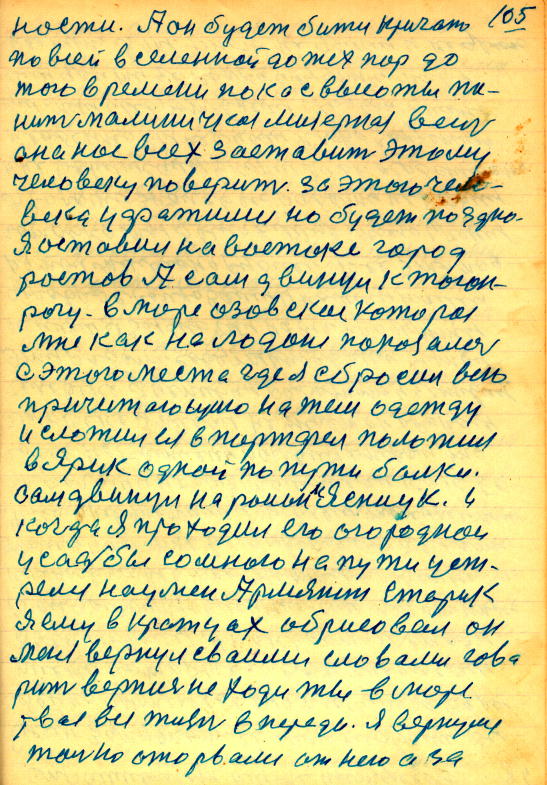 105
ности. А он будет бити кричать
по всей вселенной до тех пор до
того времени пока с высоты па-
нит малиничкая матерная весит
она нас всех заставит этому
человеку поверит. За этого чело-
века ухватимся но будет поздно.
Я оставил на востоке город
ростов А сам двинул к таган-
рогу. в море азовское которое
мне как на ладоне показалос
С этого места где я сбросил всю
причитающую на теле одежду
и сложил ея в портфел положил
в Ярик одной по пути балки.
Сам двинул на район Ясинук. и
когда я проходил его огородной
усадбы со мною на пути уст-
рел на умен Армянин Старик
Я ему в кратцах обрисовал он
меня вернул своими словами гово
рит вернис не ходи ты в море
твая вся жизн впереди. Я вернулся
толко оторвался от него а за